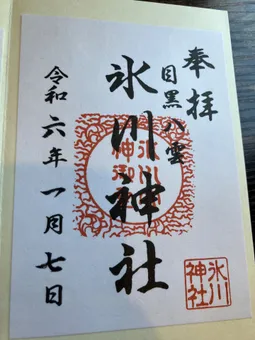 奉拝
目黒八雲
氷川神社
令和六年一月七日
氷川
神社